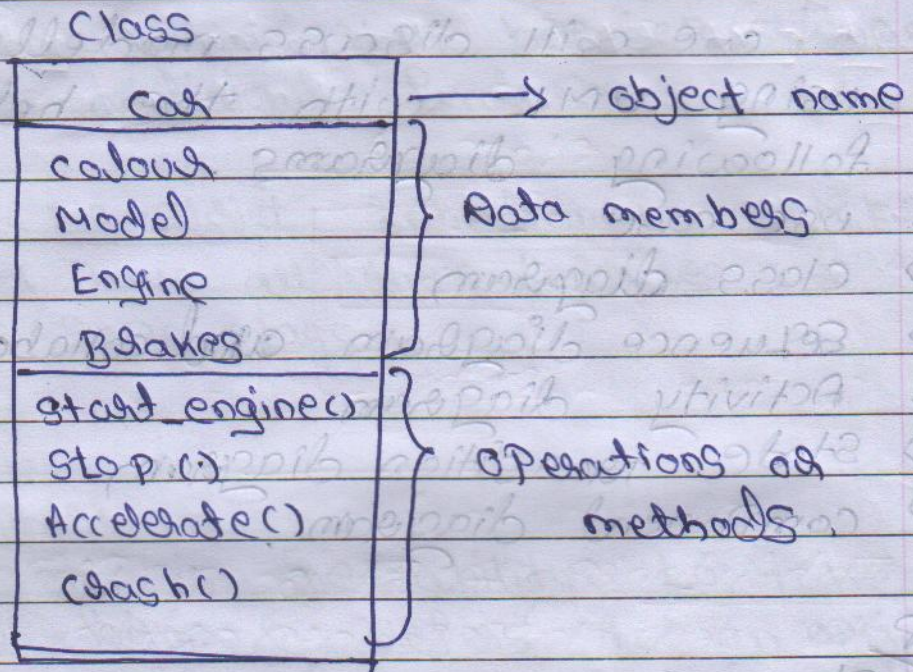 Class
car → object name
colour
Model
Engine
Brakes
Data members
start_engine()
Stop()
Accelerate()
crash()
operations or
methods.